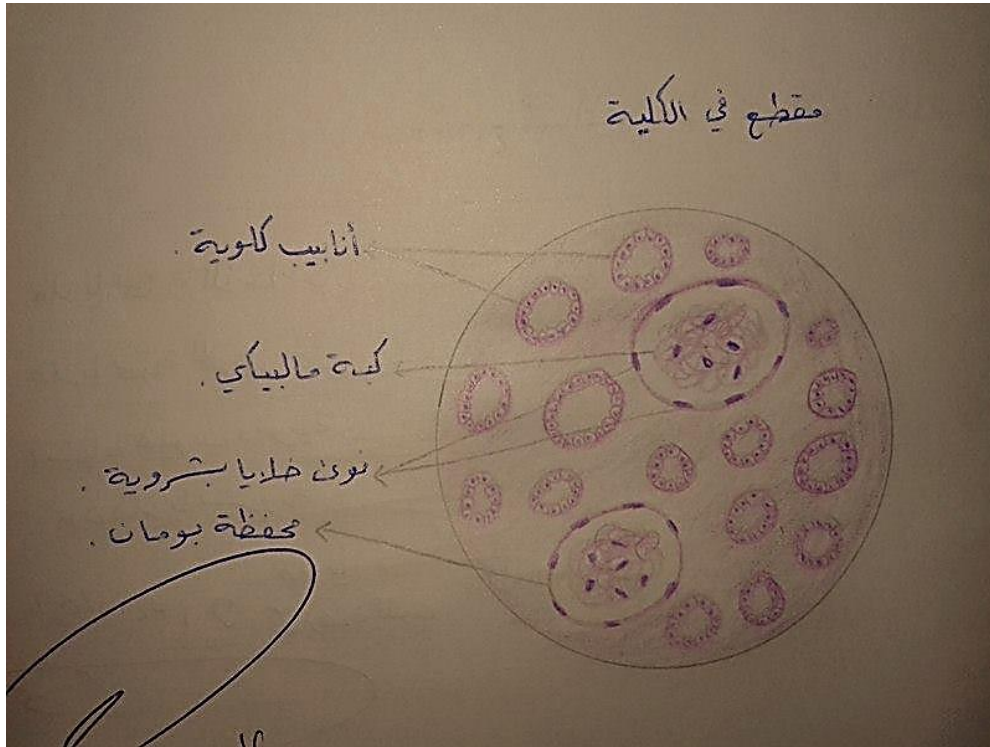 مقطع في الكلية
أنابيب كلوية .
كبة مالبيكي .
نوى خلايا بشروية .
محفظة بومان .